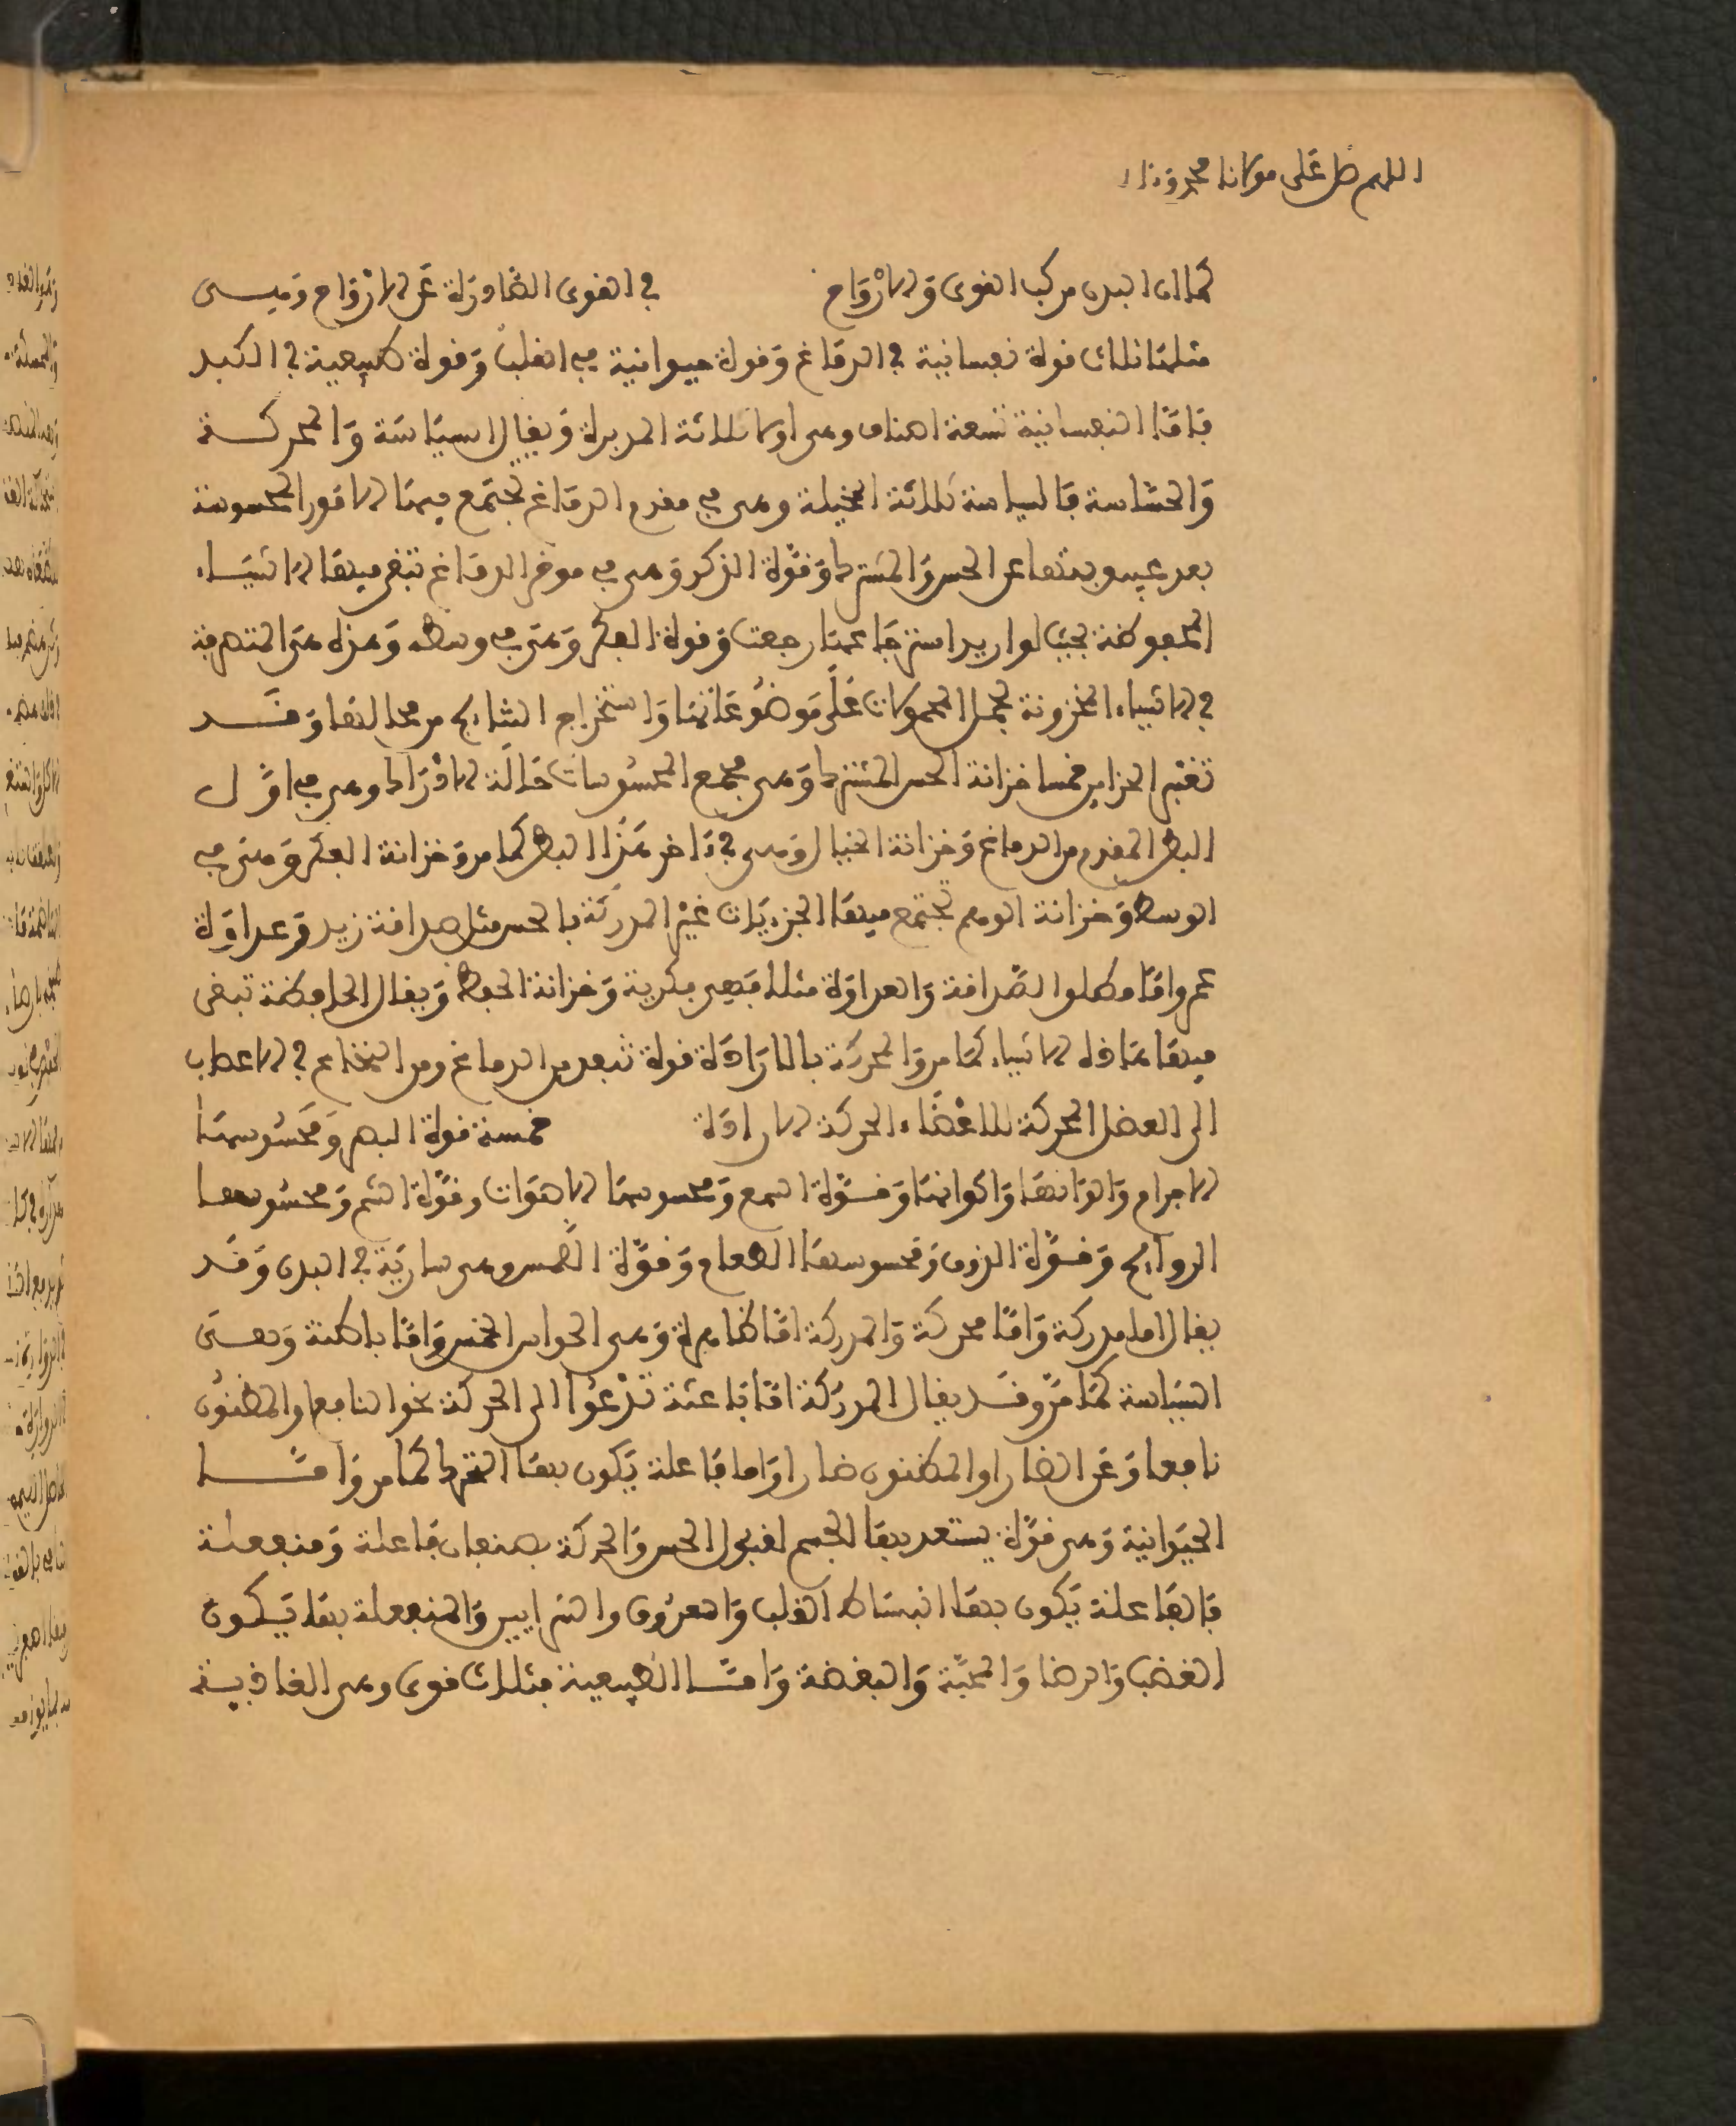 اللهم صل على مولانا محمد وءاله
كما ان البدن مركب القوى والارواح في القوى الصادرة عن الارواح وهيى
مثلها ثلاث قوة نفسانية في الدماغ وقوة حيوانية في القلب وقوة طبيعية في الكبد
فاما النفسانية تسعة اصناف وهى اولا ثلاثة المدبرة ويقال السياسة والمحركة
والحساسة فالسياسة ثلاثة المخيلة وهى في مقدم الدماغ تجتمع فيها الامور المحسوسة
بعد عن الحس المشترك وقوة الذكر وهى في موخر الدماغ تبقى فيها الاشياء
المحفوظة بحيث لو اريد استرجاعها رجعت وقوة الفكر وهى في وسطه وهذه هى المتصرفة
في الاشياء المخزونة بحمل المحمولات على موضوعاتها واستخراج النتايج من محالها وقد
تعتبر الخزاين خمسا خزانة الحس المشترك وهى مجمع المحسوسات حالة الادراك وهى في اول
البطن المقدم من الدماغ وخزانة الخيال وهى في ءاخر هذا البطن كما مر وخزانة الفكر وهى في
الوسط وخزانة الوهم تجتمع فيها الجزيات غير المدركة بالحس مثل صداقة زيد وعداوة
عمر واما مطلوا الصداقة والعداوة مثلا فهى فكرية وخزانة الحفظ ويقال الحافظة تبقى
فيها هاذه الاشياء كما مر والمحركة بالارادة قوة تنفد من الدماغ ومن النخاع في الاعصاب
الى العضل المحركة للاعضاء الحركة الارادة خمسة قوة البصر ومحسوسها
الاجرام والوانها واكوانها وقوة السمع ومحسوسها الاصوات وقوة الشم ومحسوسها
الروايح وقوة الذوق ومحسوسها الطعام وقوة اللمس وهى سارية في البدن وقد
يقال اما مدركة واما محركة والمدركة اما ظاهرة وهى الحواس الخمس واما باطنة وهى
السياسة كما مر وقد يقال المدركة اما باعثة تدعوا الى الحركة نحو النافع او المظنون
نافعا وعن الضار او المظنون ضارا واما فاعلة يكون بها التحرك كما مر واما
الحيوانية وهى قوة يستعد بها الجسم لقبول الحس والحركة صنفان فاعلة ومنفعلة
فالفاعلة يكون بها انبساط القلب والعروق والشرايين والمنفعلة بها يكون
الغضب والرضا والمحبة والبغضة واما الطبيعية فثلاث قوى وهى الغاذية